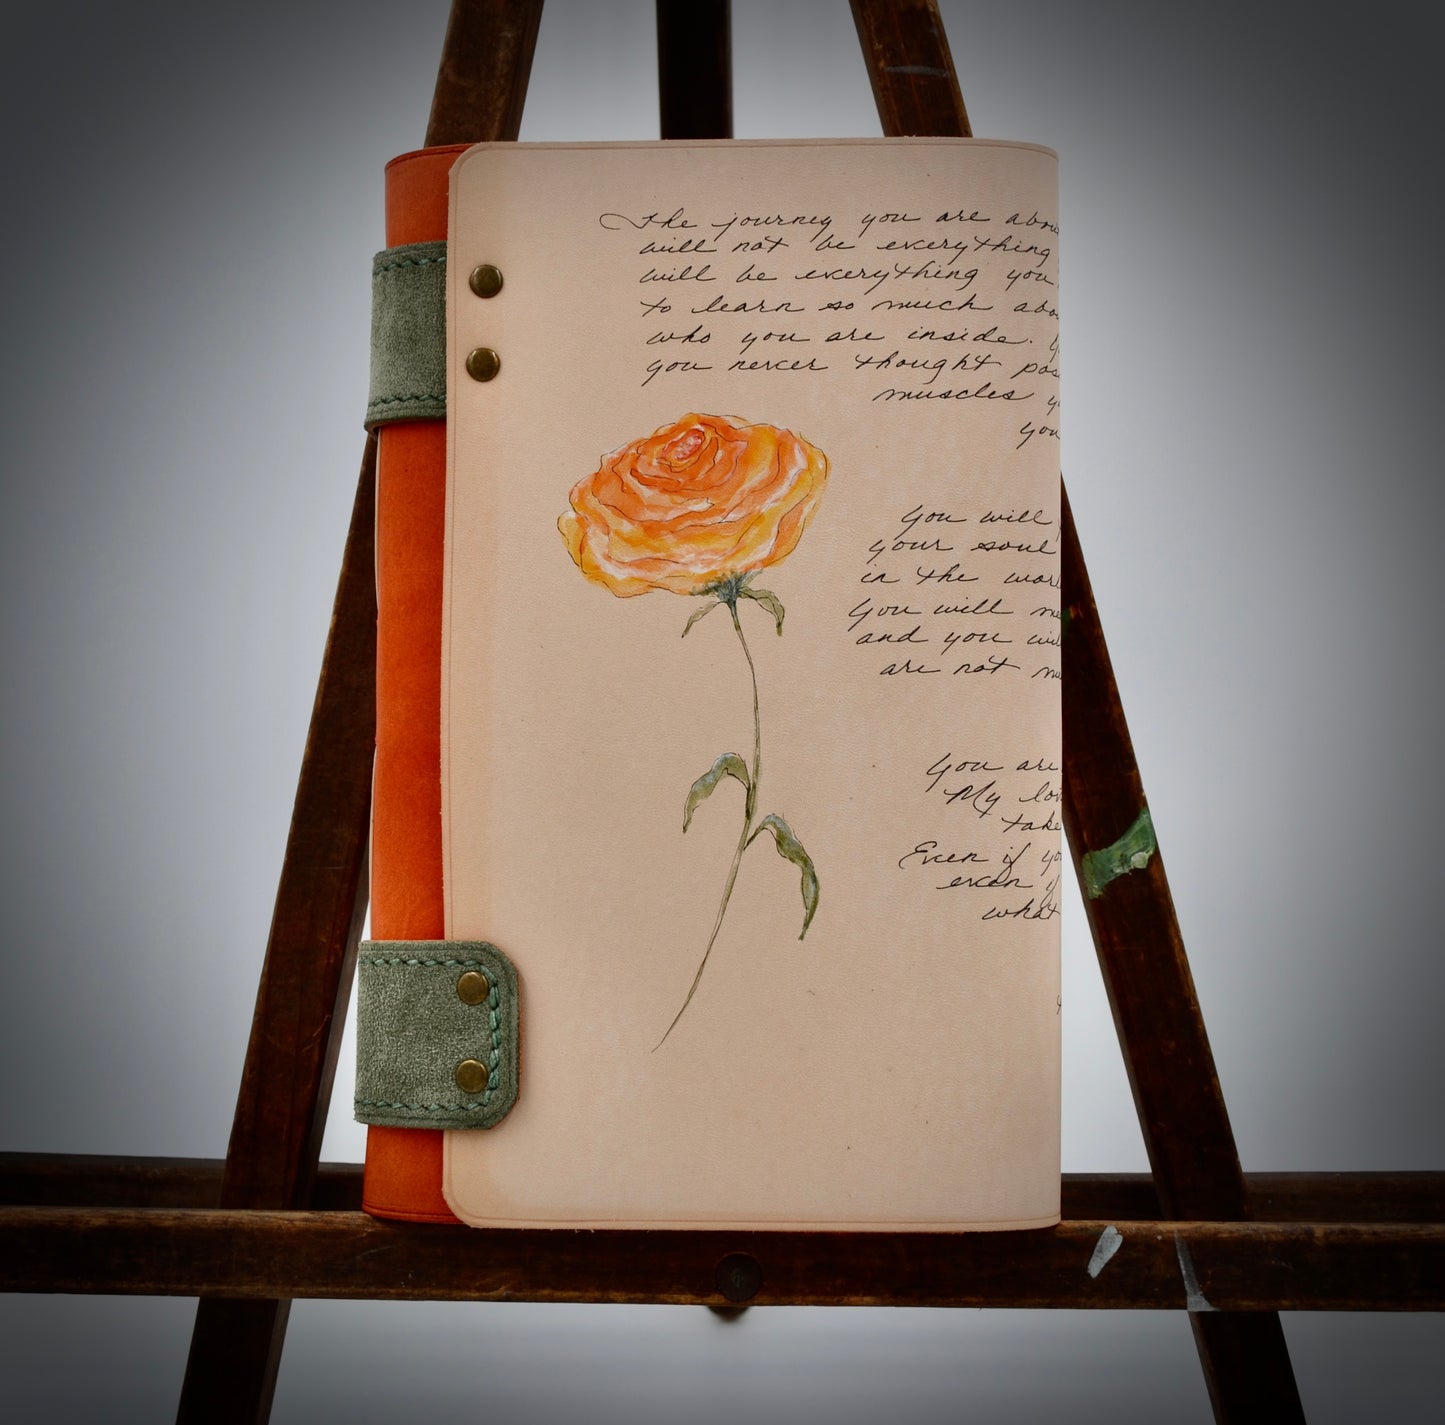 The journey you are abou
will not be everything
will be everything you
to learn so much abo
who you are inside.
you never thought pos
muscles y
you
You will
your soul
in the worl
You will me
and you wil
are not mu
You are
My lov
take
Even if yo
even if
what